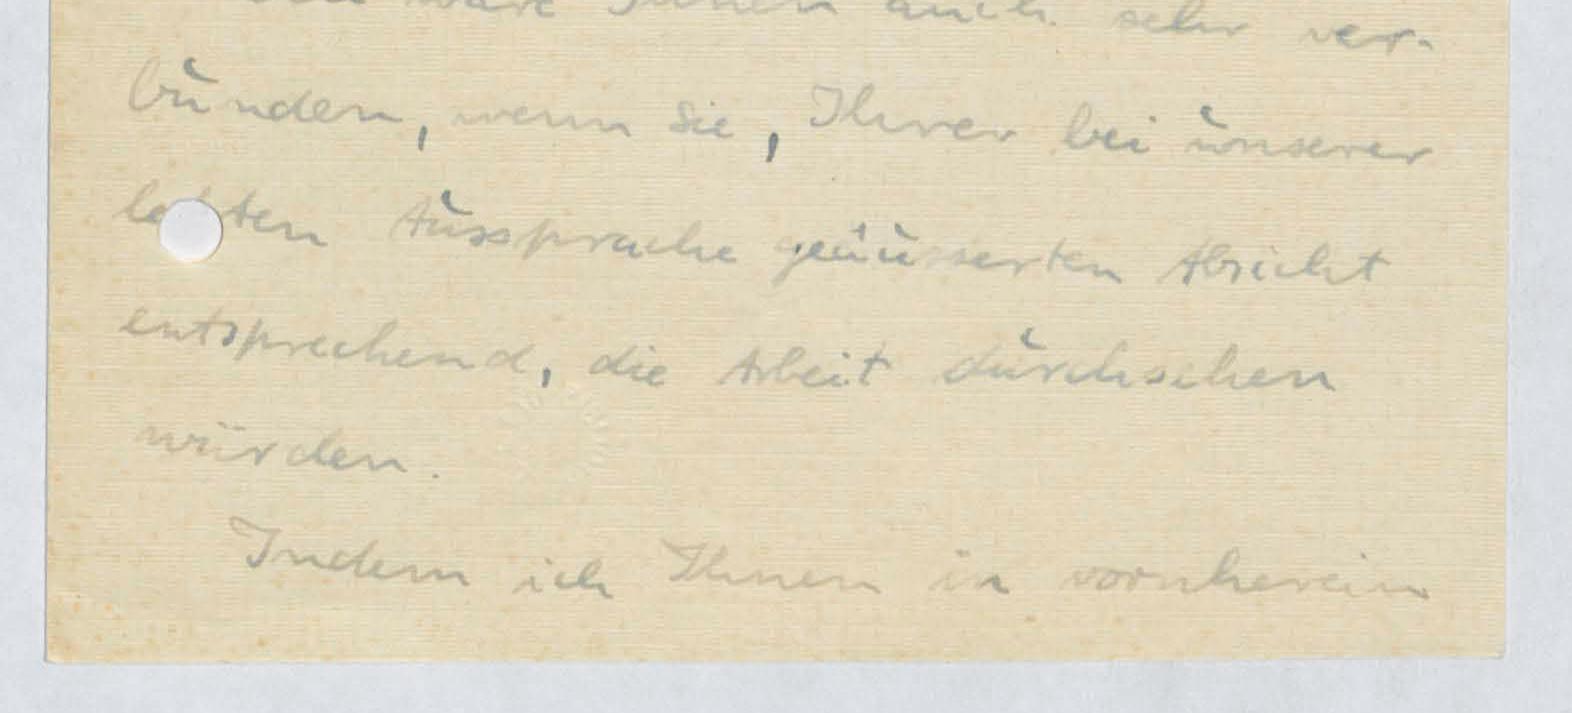 Ich wäre Ihnen auch sehr ver-
bunden, wenn Sie, Ihrer bei unserer
letzten Aussprache geäusserten Absicht
entsprechend, die Arbeit durchsehen
würden.
Indem ich Ihnen in vornherein